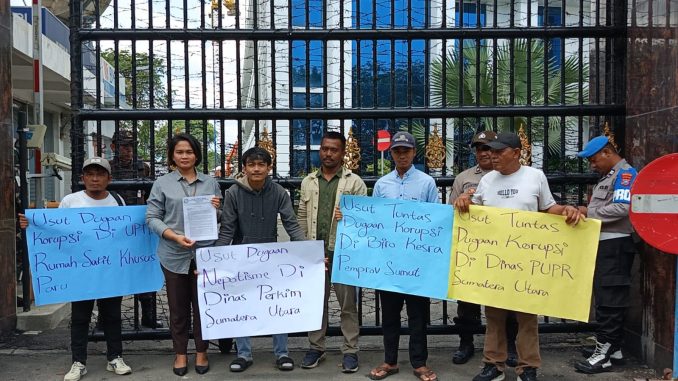 Usut Dugaan
Korupsi Di UPT
Rumah Sakit Khusus
Paru
Usut Dugaan
Nepotisme Di
Dinas Perkim
Sumatera Utara
Usut Tuntas
Dugaan Korupsi
Di Biro Kesra
Pemprov Sumut
Usut Tuntas
Dugaan Korupsi
Di Dinas PUPR
Sumatera Utara